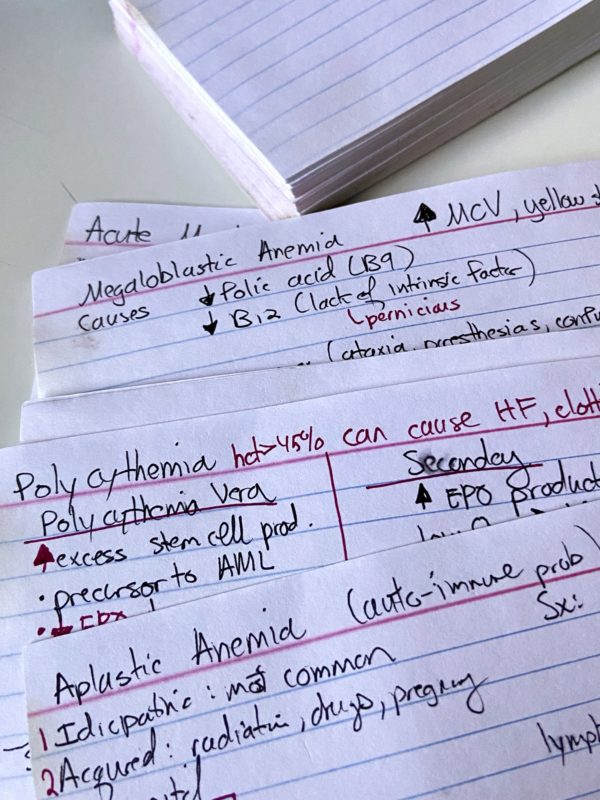 Acute
Megaloblastic Anemia ↑ MCV, yellow
Causes ↓ folic acid (B9)
↓ B12 (lack of intrinsic factor)
pernicious
(ataxia, paresthesias, confu
Polycythemia hct>45% can cause HF, clott
Polycythemia Vera
↑ excess stem cell prod.
• precursor to AML
•
Seconday
↑ EPO product
Aplastic Anemia (auto-immune prob)
Sx:
1 Idiopathic: most common
2 Acqured: radiation, drugs, pregnancy
lymph